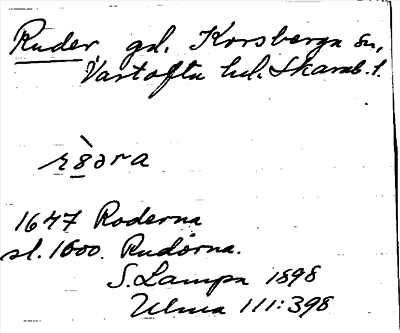 Ruder gd. Korsberga sn,
Vartofta hd. Skarab. l.
1647 Roderna
sl. 1600. Rudorna.
S. Lampa 1898
Ulma 111:398